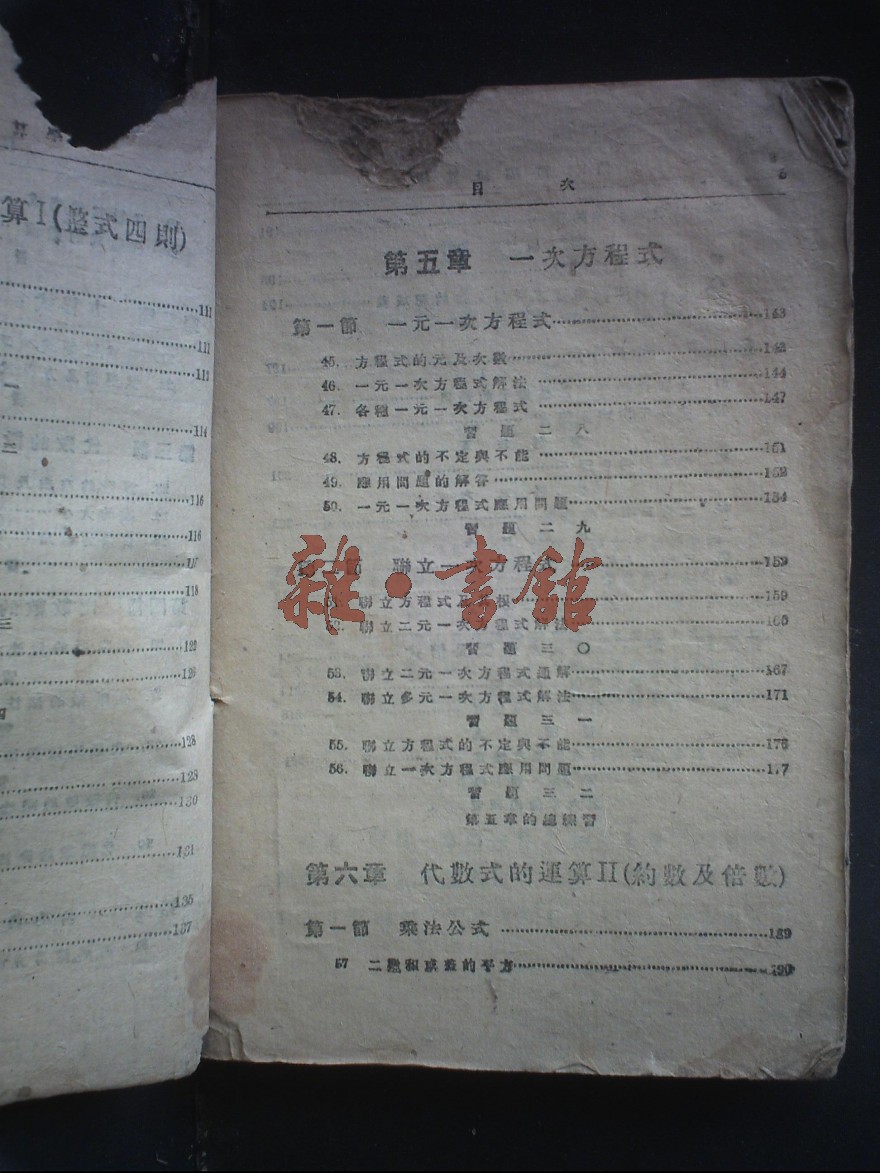 算I(整式四則)
111
111
113
114
116
116
117
118
三
122
126
四
128
129
130
131
135
137
目 次
第五章 一次方程式
第一節 一元一次方程式 143
45. 方程式的元及次數 143
46. 一元一次方程式解法 144
47. 各種一元一次方程式 147
習題二八
48. 方程式的不定與不能 151
49. 應用問題的解答 153
50. 一元一次方程式應用問題 154
習題二九
第二節 聯立一次方程式 159
聯立方程式及 根 159
52. 聯立二元一次方程式解法 160
習題三〇
53. 聯立二元一次方程式通解 167
54. 聯立多元一次方程式解法 171
習題三一
55. 聯立方程式的不定與不能 176
56. 聯立一次方程式應用問題 177
習題三二
第五章的總練習
第六章 代數式的運算II(約數及倍數)
第一節 乘法公式 189
57 二數和或差的平方 190
雜·書館